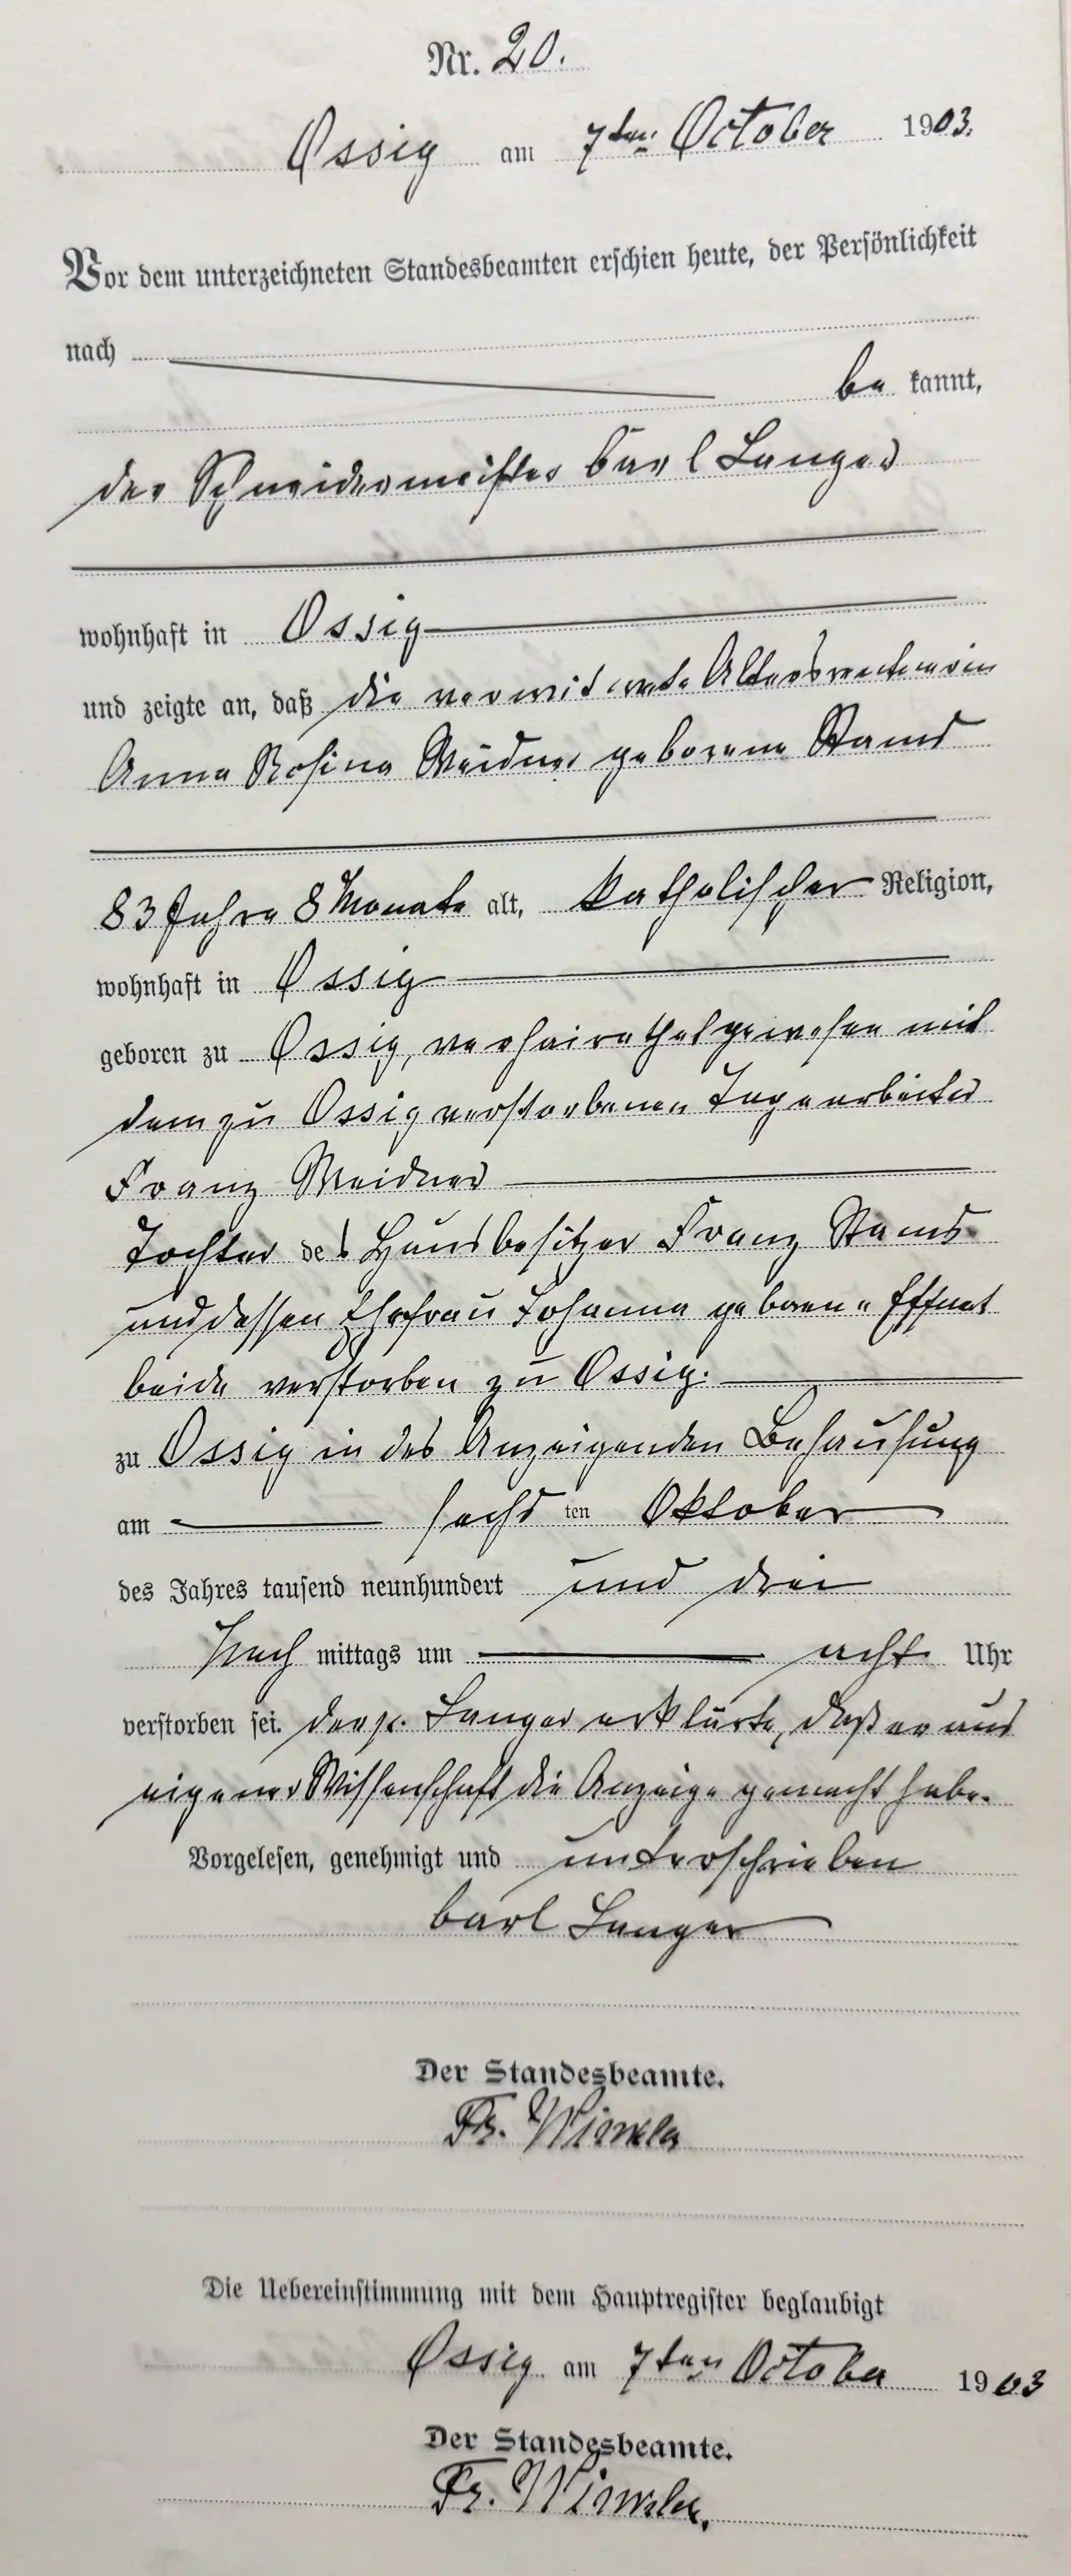 Nr. 20.
Ossig am 7ten October 1903.
Vor dem unterzeichneten Standesbeamten erschien heute, der Persönlichkeit
nach
be kannt,
der Schneidermeister Carl Langer
wohnhaft in Ossig
und zeigte an, daß die verwitwete Altersrentnerin
Anna Rosina Weidner geborene
83 Jahre 8 Monate alt, katholischer Religion,
wohnhaft in Ossig
geboren zu Ossig, verheirathet gewesen mit
dem zu Ossig verstorbenen Tagearbeiter
Franz Weidner
Tochter des Hausbesitzer Franz
und dessen Ehefrau Johanna geborene Effnert
beide verstorben zu Ossig.
zu Ossig in des Anzeigenden Behausung
am sechsten Oktober
des Jahres tausend neunhundert und drei
Nach mittags um acht Uhr
verstorben sei. Der p. Langer erklärte, daß er aus
eigener Wissenschaft die Anzeige gemacht habe.
Vorgelesen, genehmigt und unterschrieben
Carl Langer
Der Standesbeamte.
Fr.
Die Uebereinstimmung mit dem Hauptregister beglaubigt
Ossig am 7ten October 1903
Der Standesbeamte.
Fr.